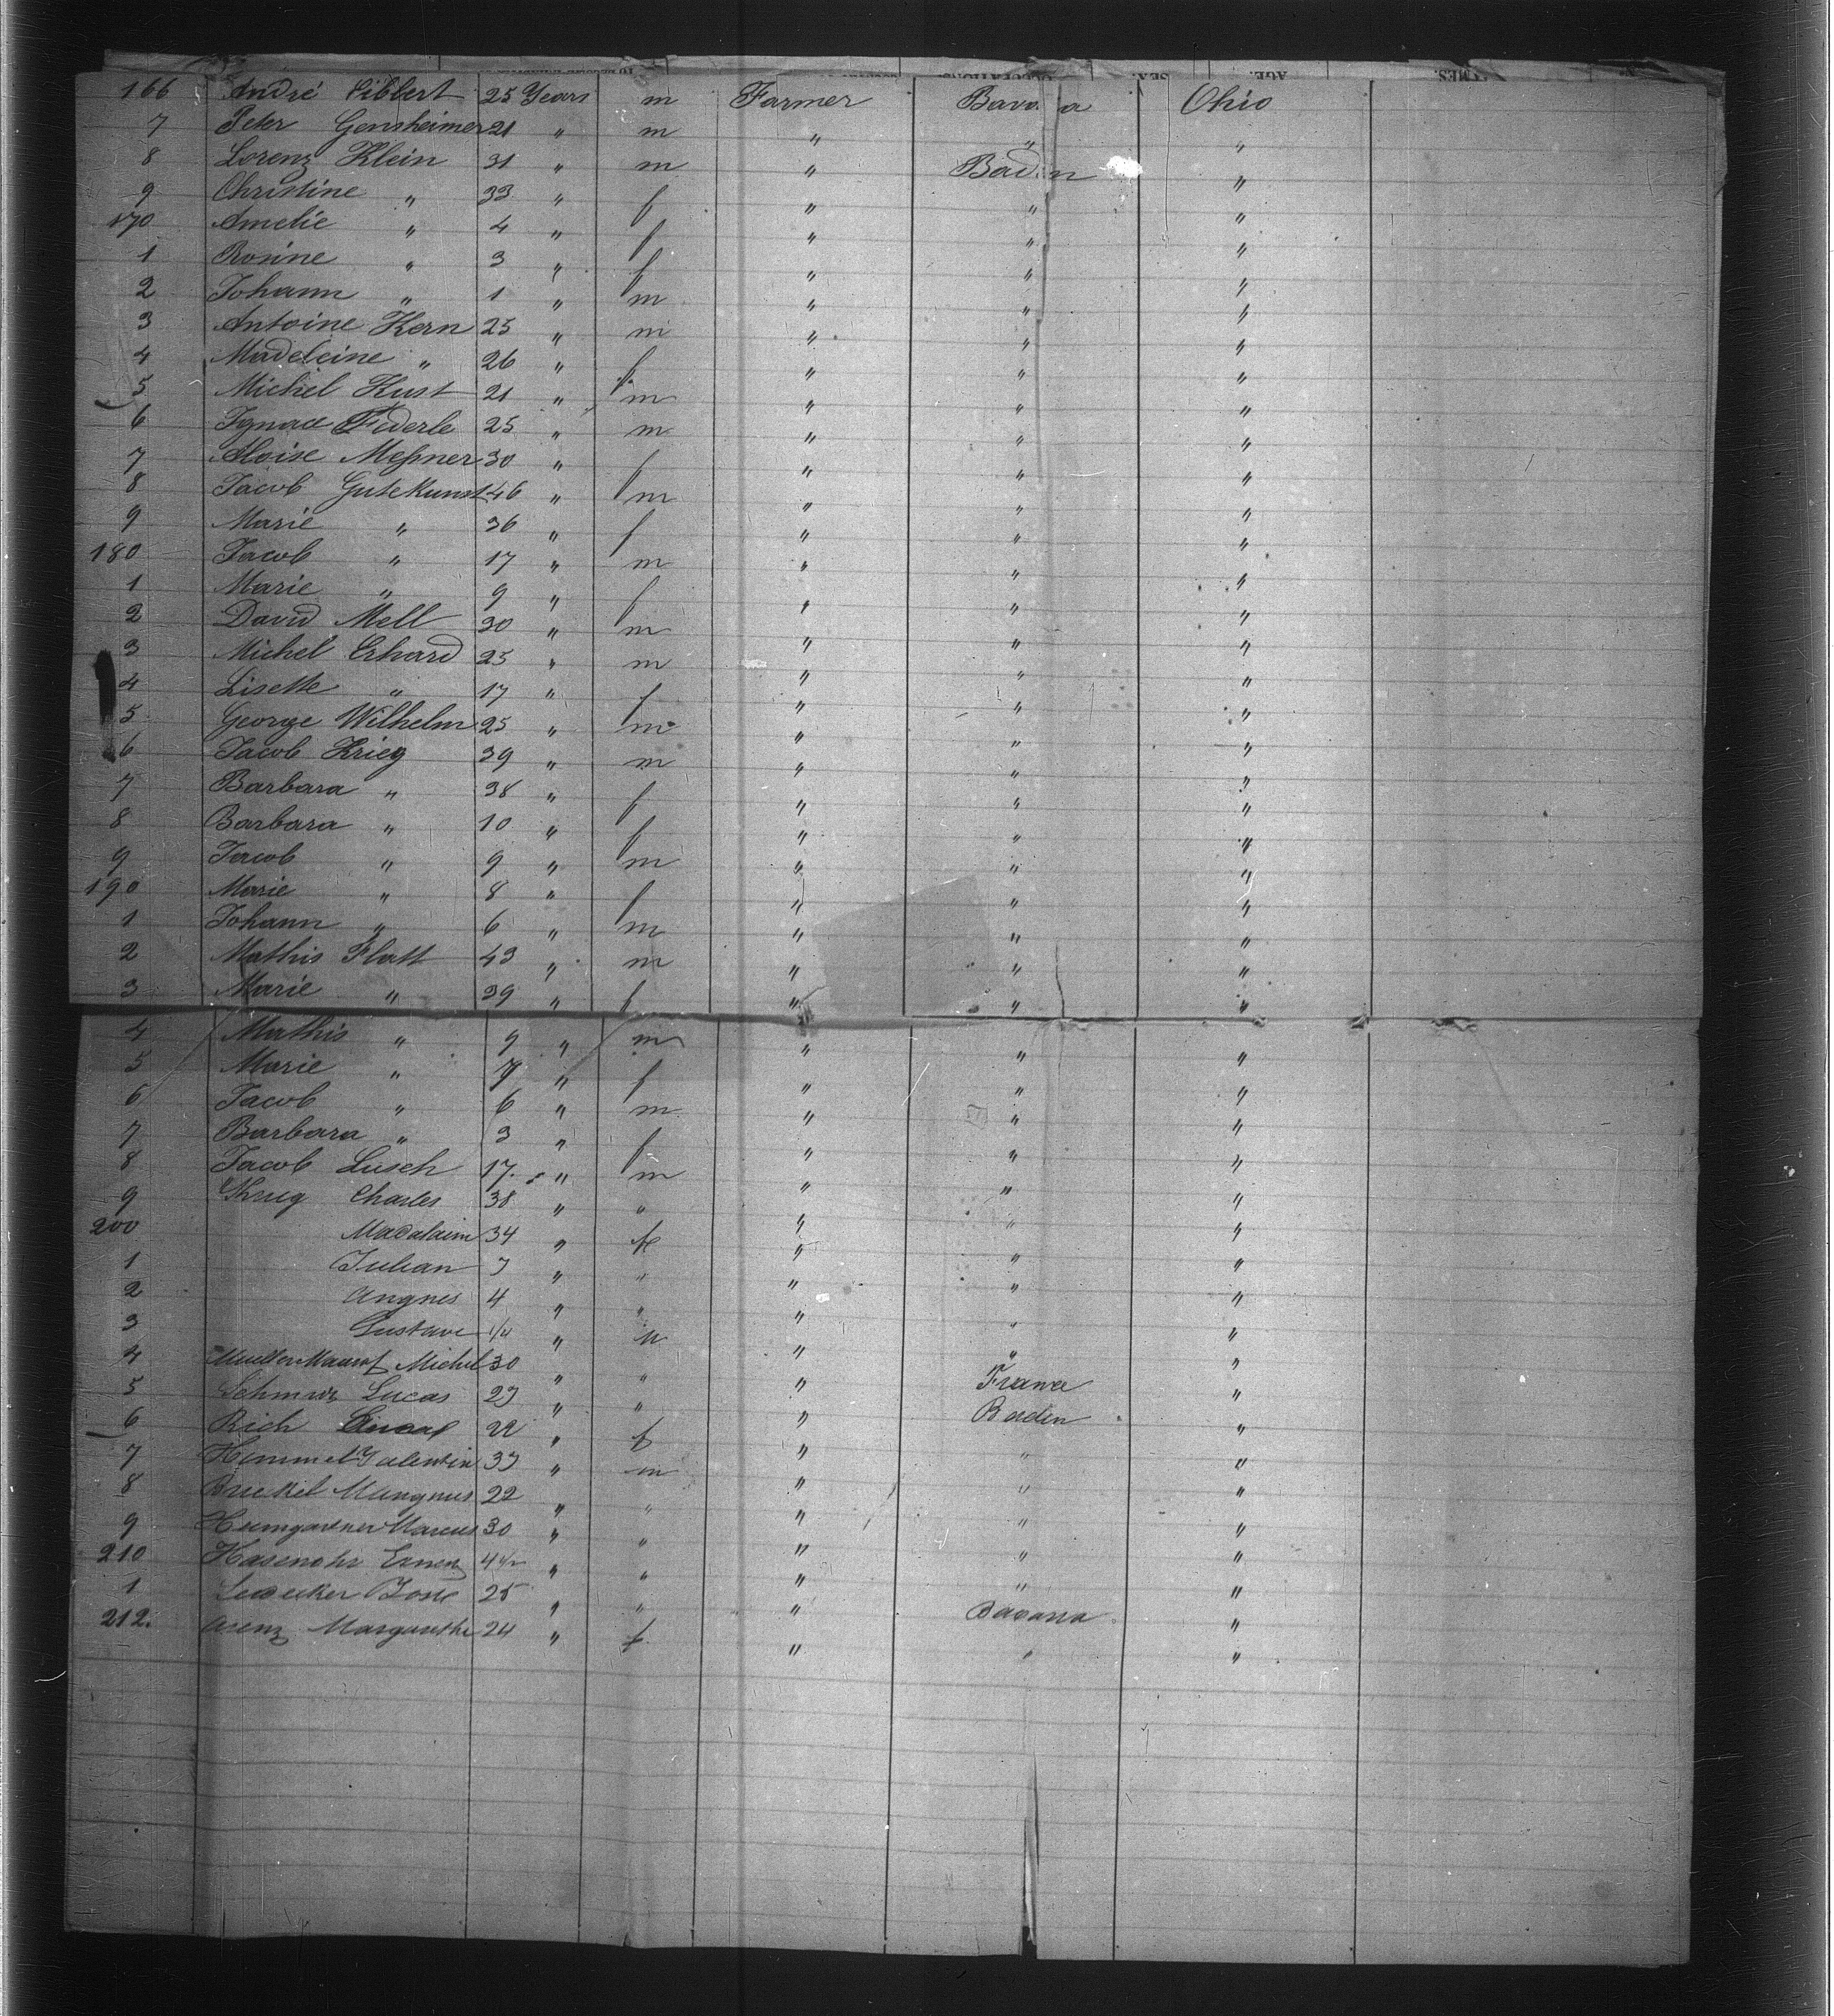 166 André Libbert 25 Years m Farmer Bava a Ohio
7 Peter Gensheimer 21 " m " " "
8 Lorenz Klein 31 " m " Baden "
9 Christine " 33 " f " " "
170 Amelie " 4 " f " " "
1 Rosine " 3 " f " " "
2 Johann " 1 " m " " "
3 Antoine Kern 25 " m " " "
4 Madeleine " 26 " f " " "
5 Michel Kust 21 " m " " "
6 Ignace Federle 25 " m " " "
7 Aloise Meßner 30 " f " " "
8 Jacob Gutekunst 46 " m " " "
9 Marie " 36 " f " " "
180 Jacob " 17 " m " " "
1 Marie " 9 " f " " "
2 David Mell 30 " m " " "
3 Michel Erhard 25 " m " " "
4 Lisette " 17 " f " " "
5 George Wilhelm 25 " m " " "
6 Jacob Krieg 39 " m " " "
7 Barbara " 38 " f " " "
8 Barbara " 10 " f " " "
9 Jacob " 9 " m " " "
190 Marie " 8 " f " " "
1 Johann " 6 " m " " "
2 Mathis Flatt 43 " m " " "
3 Marie " 39 " f " " "
4 Mathis " 9 " m " " "
5 Marie " 7 " f " " "
6 Jacob " 6 " m " " "
7 Barbara " 3 " f " " "
8 Jacob Lusch 17 " m " " "
9 Krug Charles 38 " " " " "
200 Madalaim 34 " fe " " "
1 Julian 7 " " " " "
2 Angnes 4 " " " " "
3 Gustave " M " " "
4 Michel 30 " " " France "
5 Lucas 27 " " " Baden "
6 Rich 22 " f " " "
7 Hemmel Valentin 37 " m " " "
8 Bruckel Mangnus 22 " " " " "
9 Heimgartner Marcus 30 " " " " "
210 Hasenohr " " " " "
1 25 " " " Bavaria "
212. Arenz Margarethe 24 " f " " "